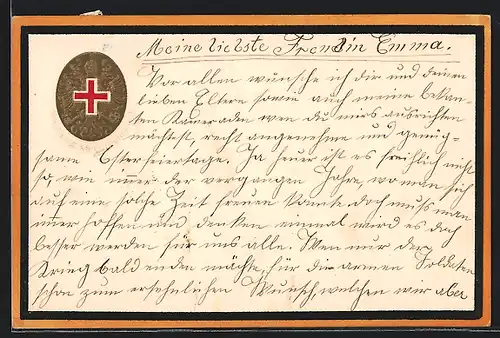 Meine liebste Freudin Emma.
Vor allen wünsche ich dir und deinen
lieben Eltern sowie auch meine bekan-
ten Kameraden wen du mirs ausrichten
möchtest, recht angenehme und genüg-
same Osterfeiertage. Ja heuer eht es freihlich nicht
so, wie imer der vergangen Jahre, wo man sich
auf eine solche Zeit freuen konnte doch muss man
imer hoffen und denken einmal wird es doch
besser werden für uns alle. Wen nur der
Krieg bald enden möchte, für die armen Soldaten
schon zum ersehnlichen Wunsch, welchen wir aber